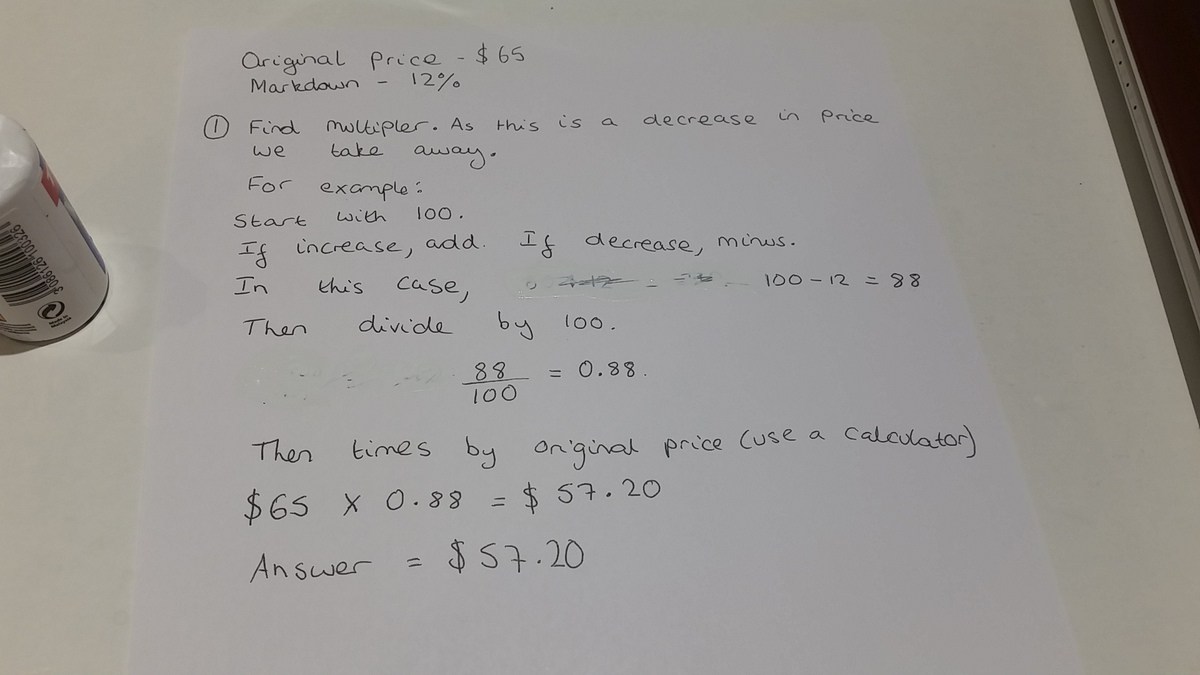 Original Price - $65
Markdown - 12%
① Find multipler. As this is a decrease in price
we take away.
For example:
Start with 100.
If increase, add. If decrease, minus.
In this case, 100 - 12 = 88
Then divide by 100.
88
100
= 0.88.
Then times by original price (use a calculator)
$65 x 0.88 = $57.20
Answer = $57.20
Made in